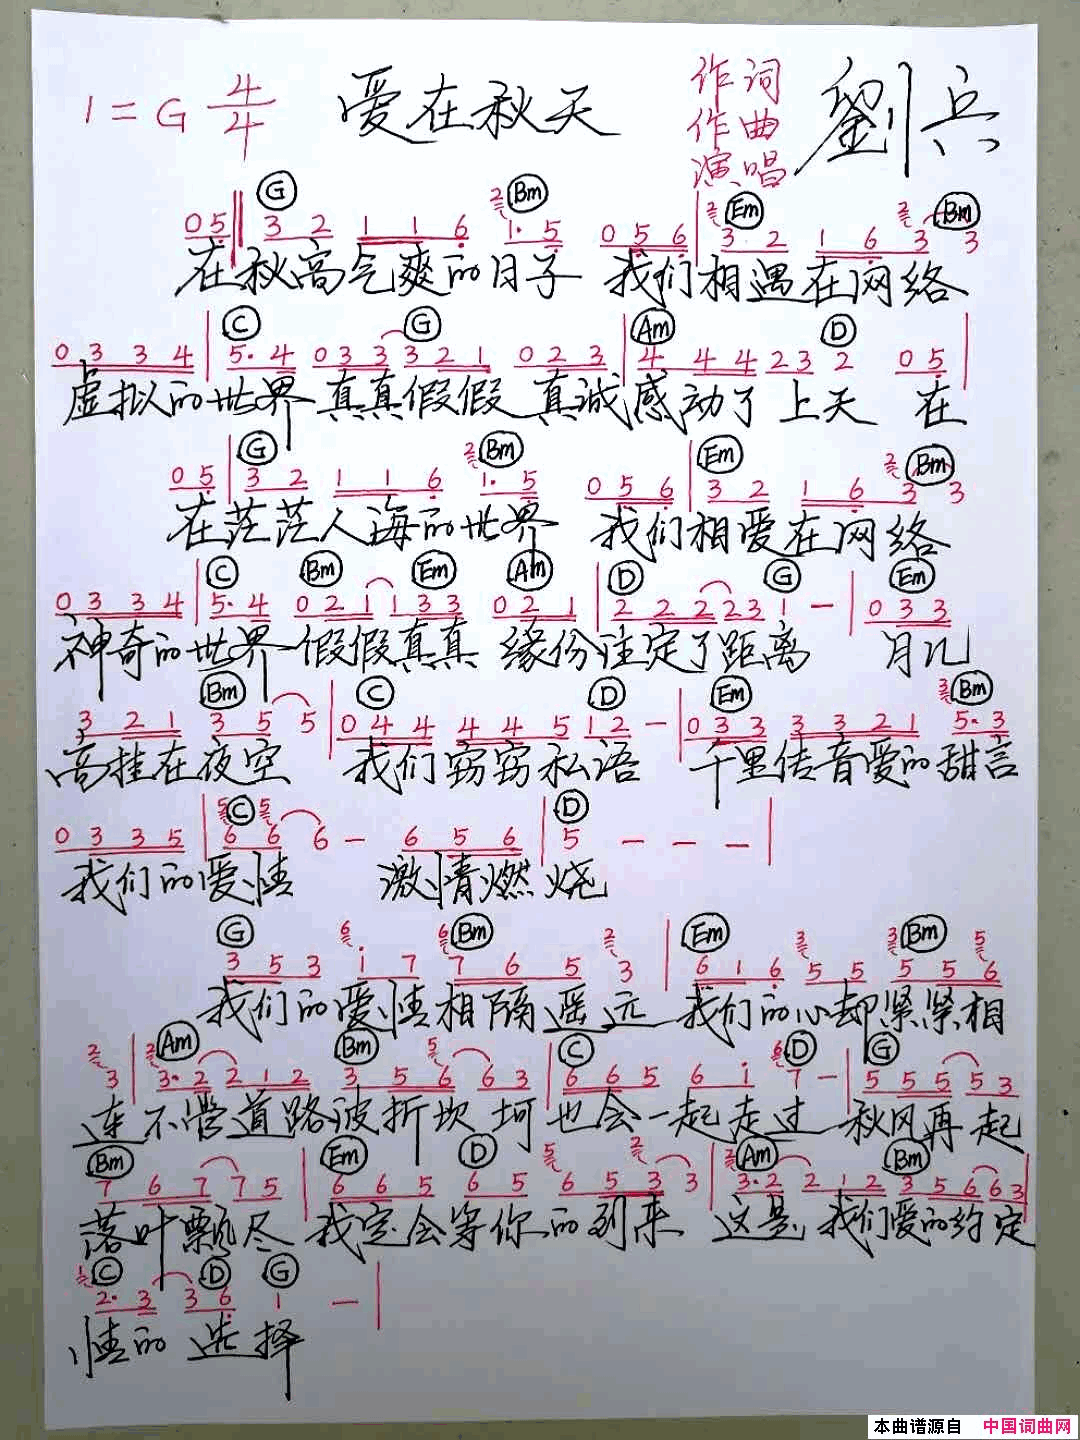 1=G 4/4 爱在秋天 作词 作曲 演唱 劉兵
G Bm Em Bm
05 32 116 1·5 056 32 163 3
在秋高气爽的日子 我们相遇在网络
C G Am D
0334 5·4 033321 023 444232 05
虚拟的世界真真假假 真诚感动了上天 在
G Bm Em Bm
05 32 116 1·5 056 32 163 3
在茫茫人海的世界 我们相爱在网络
C Bm Em Am D G Em
0334 5·4 021133 021 2222231 — 033
神奇的世界假假真真 缘份注定了距离 月儿
Bm C D Em Bm
321 35 5 044 445 12 — 033 3321 5·3
高挂在夜空 我们窃窃私语 千里传音爱的甜言
C D
0335 66 6 — 656 5 — — —
我们的爱情 激情燃烧
G Bm Em Bm
353 i7 765 3 616 55 556
我们的爱情相隔遥远 我们的心却紧紧相
Am Bm C D G
3 3·2212 356 63 665 6i 7 — 55553
连不管道路波折坎坷也会一起走过 秋风再起
Bm Em D Am Bm
767 75 665 65 653 3 3·2 212 35663
落叶飘尽 我定会等你的到来 这是我们爱的约定
C D G
2·3 36 1 —
情的选择
本曲谱源自 中国词曲网